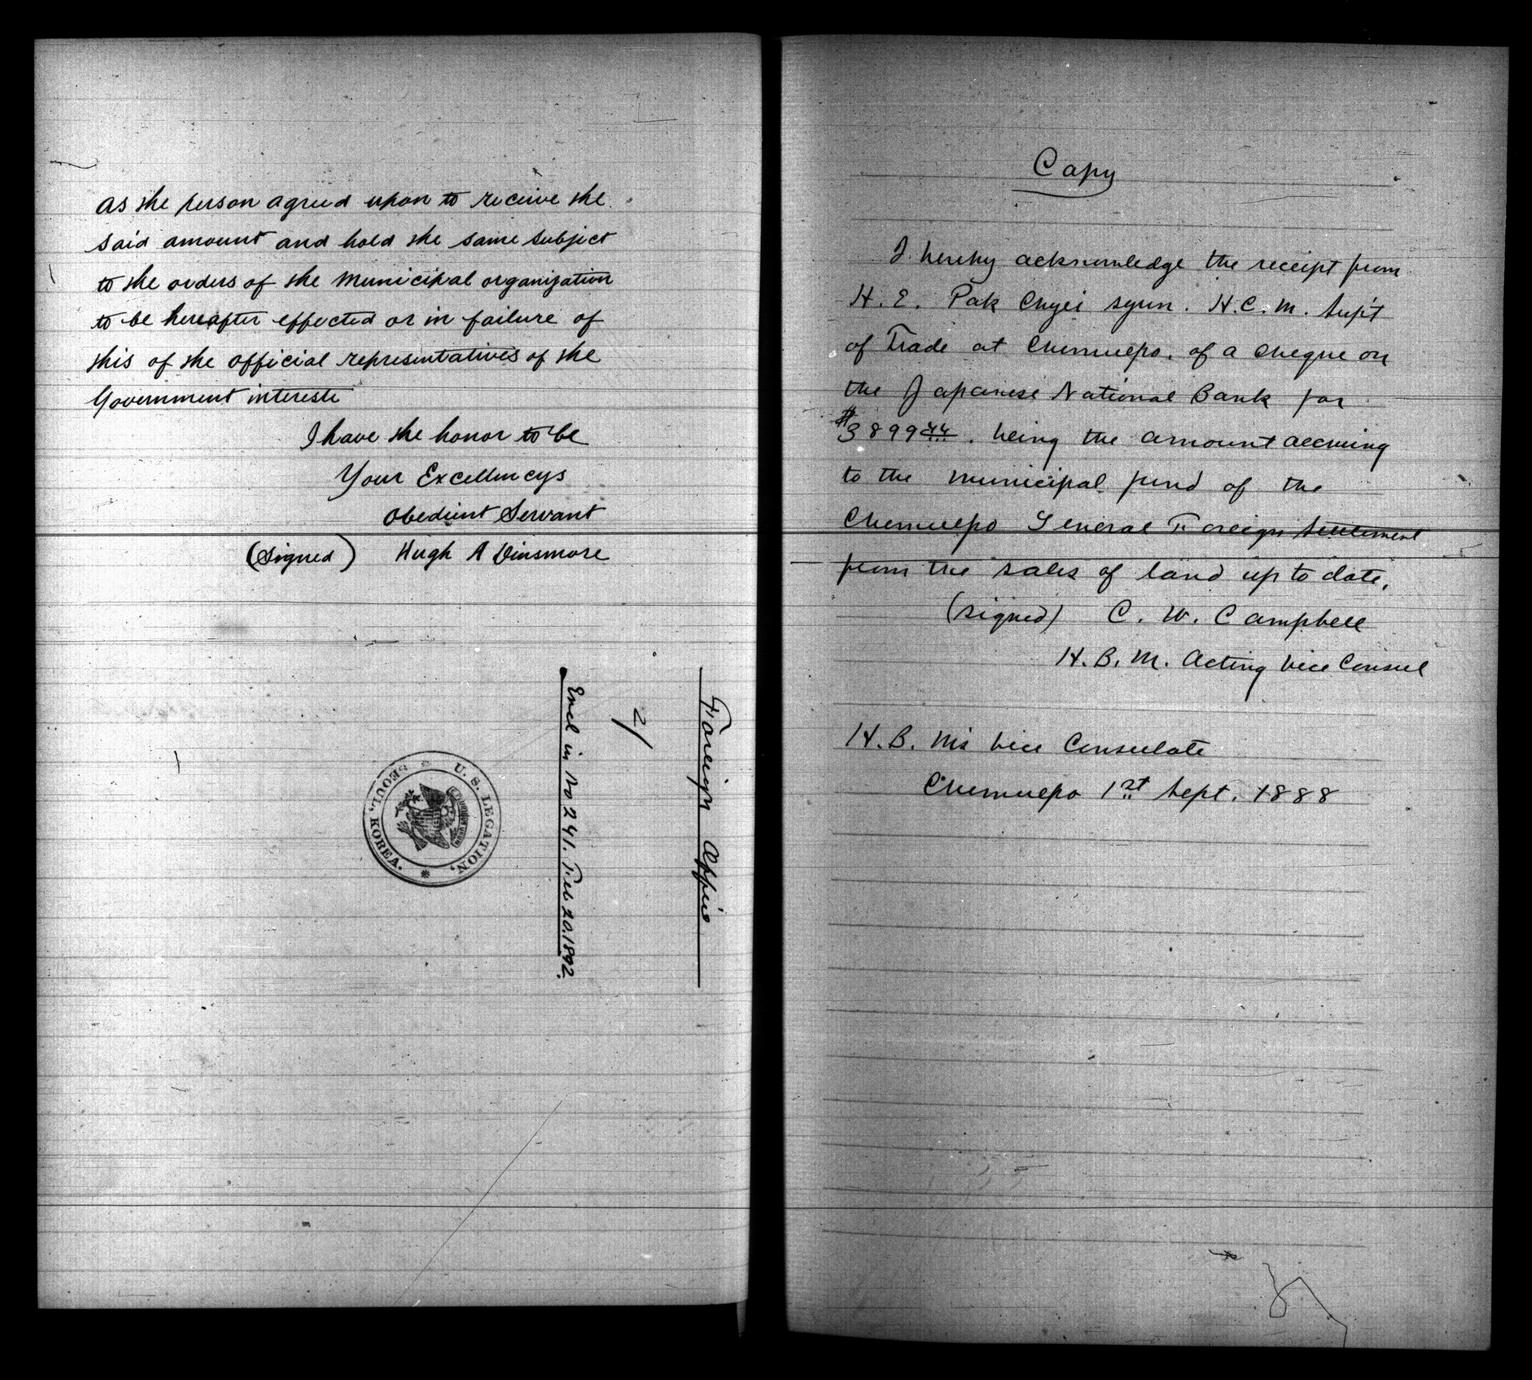 as the person agreed upon to receive the
said amount and hold the same subject
to the orders of the Municipal organization
to be hereafter effected or in failure of
this of the official representatives of the
Government interests
I have the honor to be
Your Excellencys
Obedient Servant
(Signed) Hugh A Dinsmore
Foreign Office
2/
Encl in No 241. Feb 20. 1892.
U. S. LEGATION,
SEOUL, KOREA.
Copy
I hereby acknowledge the receipt from
H. E. Pak Chyei syun. H. C. M. Sup't
of Trade at Chemulpo. of a cheque on
the Japanese National Bank for
$3899.44. being the amount accruing
to the municipal fund of the
Chemulpo General Foreign Settlement
from the sales of land up to date,
(signed) C. W. Campbell
H. B. M. Acting Vice Consul
H. B. M's Vice Consulate
Chemulpo 1st Sept. 1888